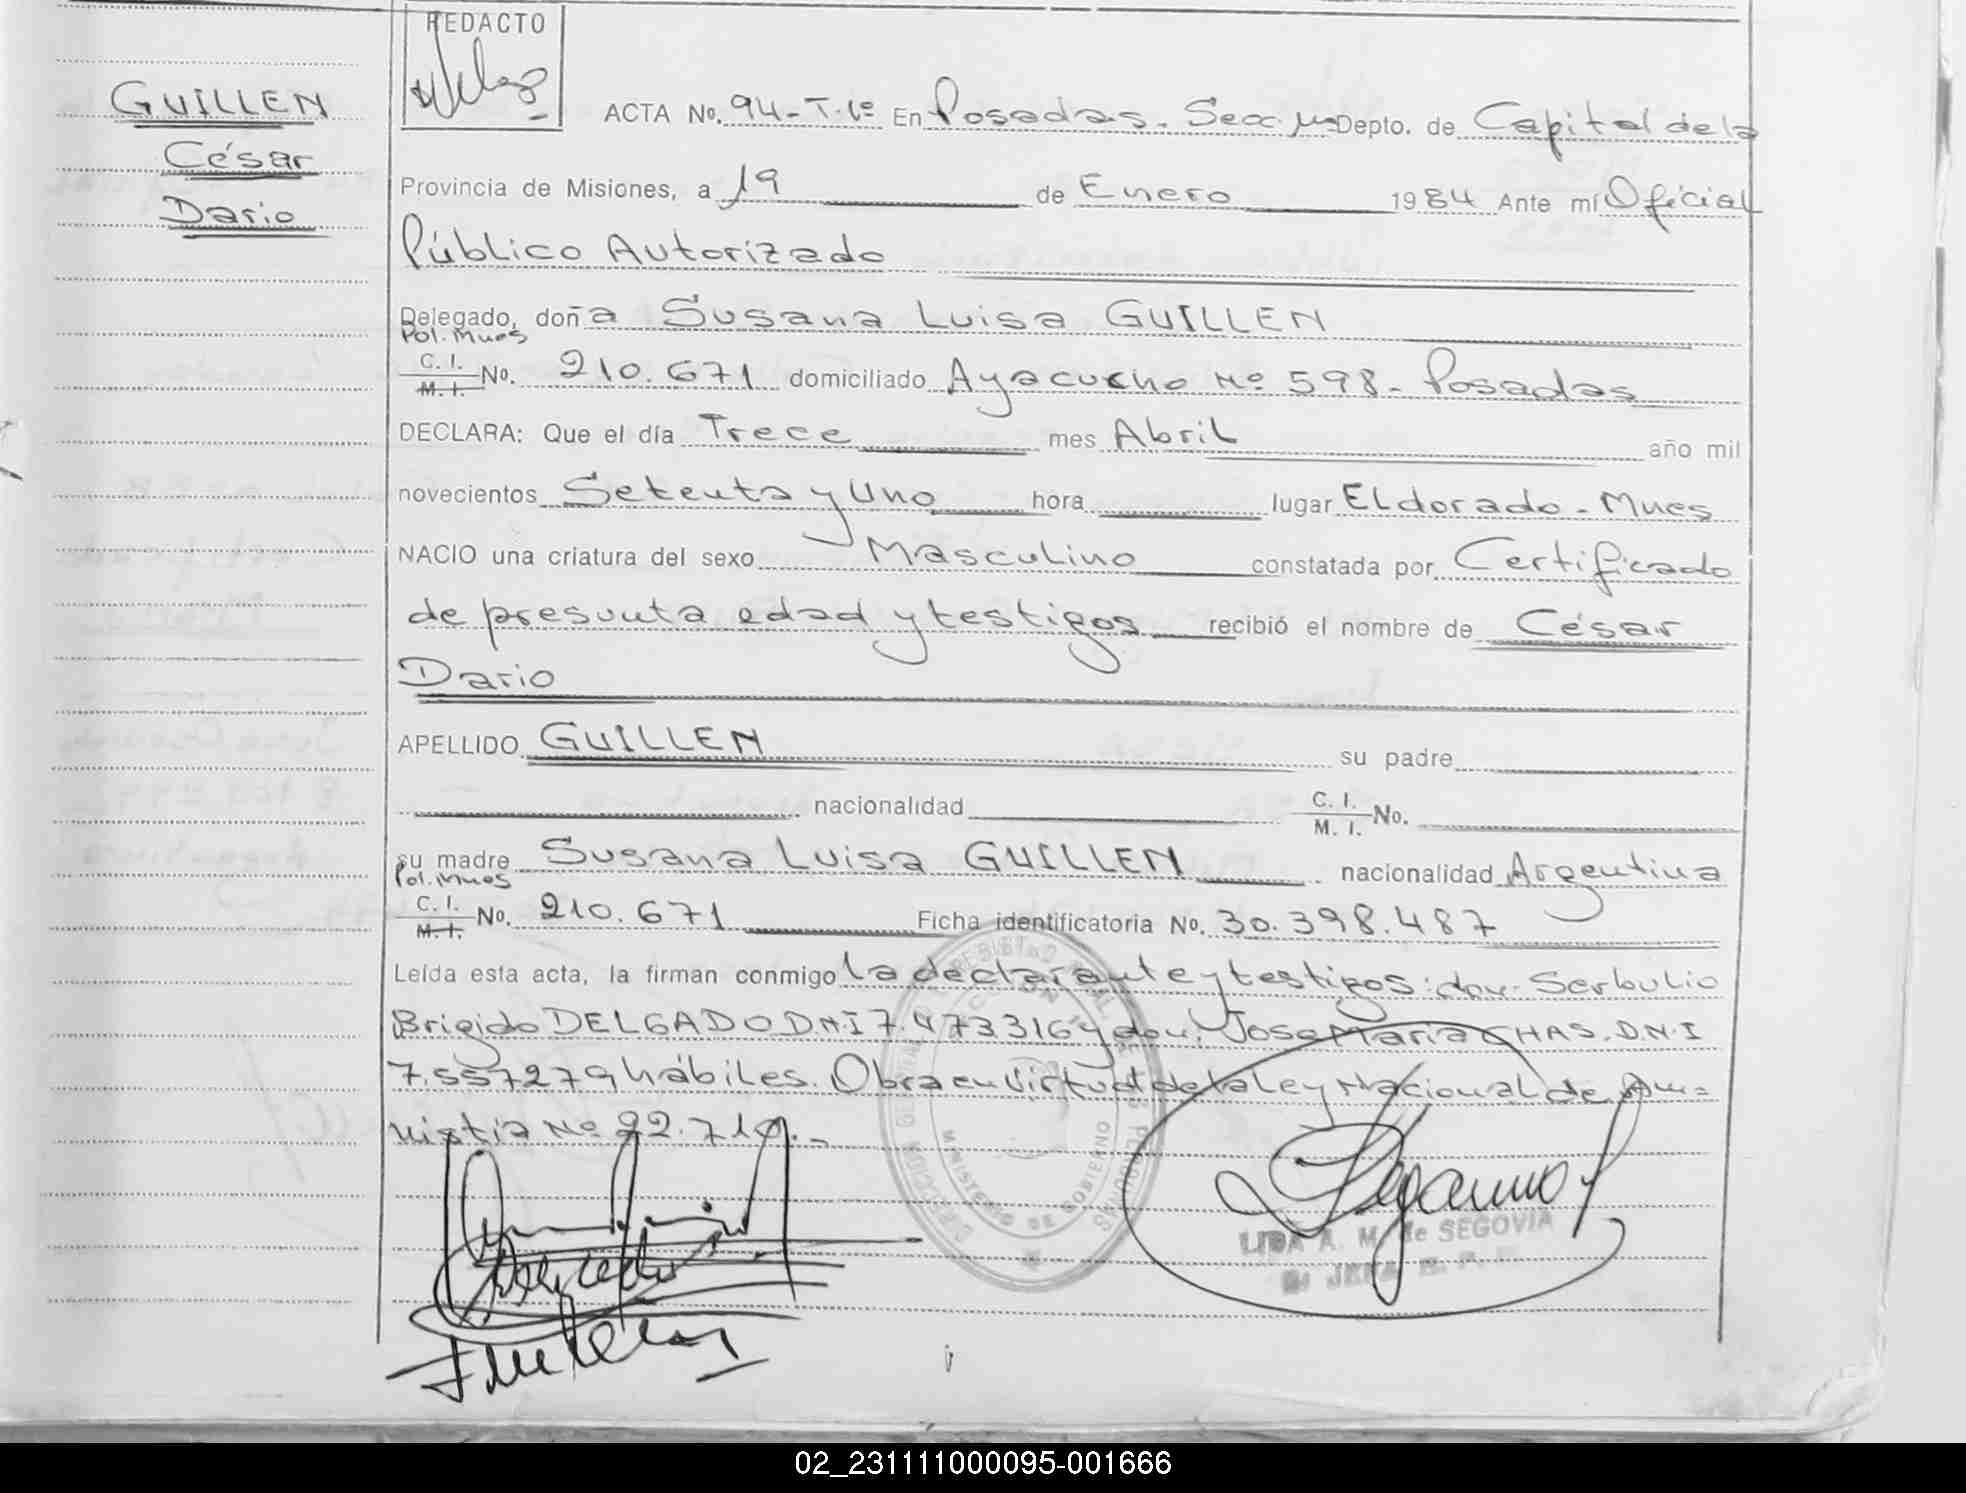 REDACTO
GUILLEN
César
Dario
ACTA No. 94-T.1º En Posadas. Secc. Depto. de Capital de la
Provincia de Misiones, a 19 de Enero 1984 Ante mí Oficial
Público Autorizado
Delegado, doña Susana Luisa GUILLEN
Pol. Mnes
C. I. M. I. No. 210.671 domiciliado Ayacucho Nº 598 - Posadas
DECLARA: Que el día Trece mes Abril año mil
novecientos Setenta y Uno hora lugar Eldorado - Mnes
NACIO una criatura del sexo Masculino constatada por Certificado
de presunta edad y testigos recibió el nombre de César
Dario
APELLIDO GUILLEN su padre
nacionalidad C. I. M. I. No.
su madre Susana Luisa GUILLEN nacionalidad Argentina
Pol. Mnes
C. I. M. I. No. 210.671 Ficha identificatoria No. 30.398.487
Leída esta acta, la firman conmigo la declarante y testigos: don Serbulio
Brigido DELGADO D.N.I 7.473316 y don José Maria CHAS. D.N.I
7.557279 hábiles. Obra en virtud de la Ley Nacional de Am=
nistia Nº 22.710.-
MINISTERIO DE GOBIERNO
LIDA A. M. de SEGOVIA
02_231111000095-001666